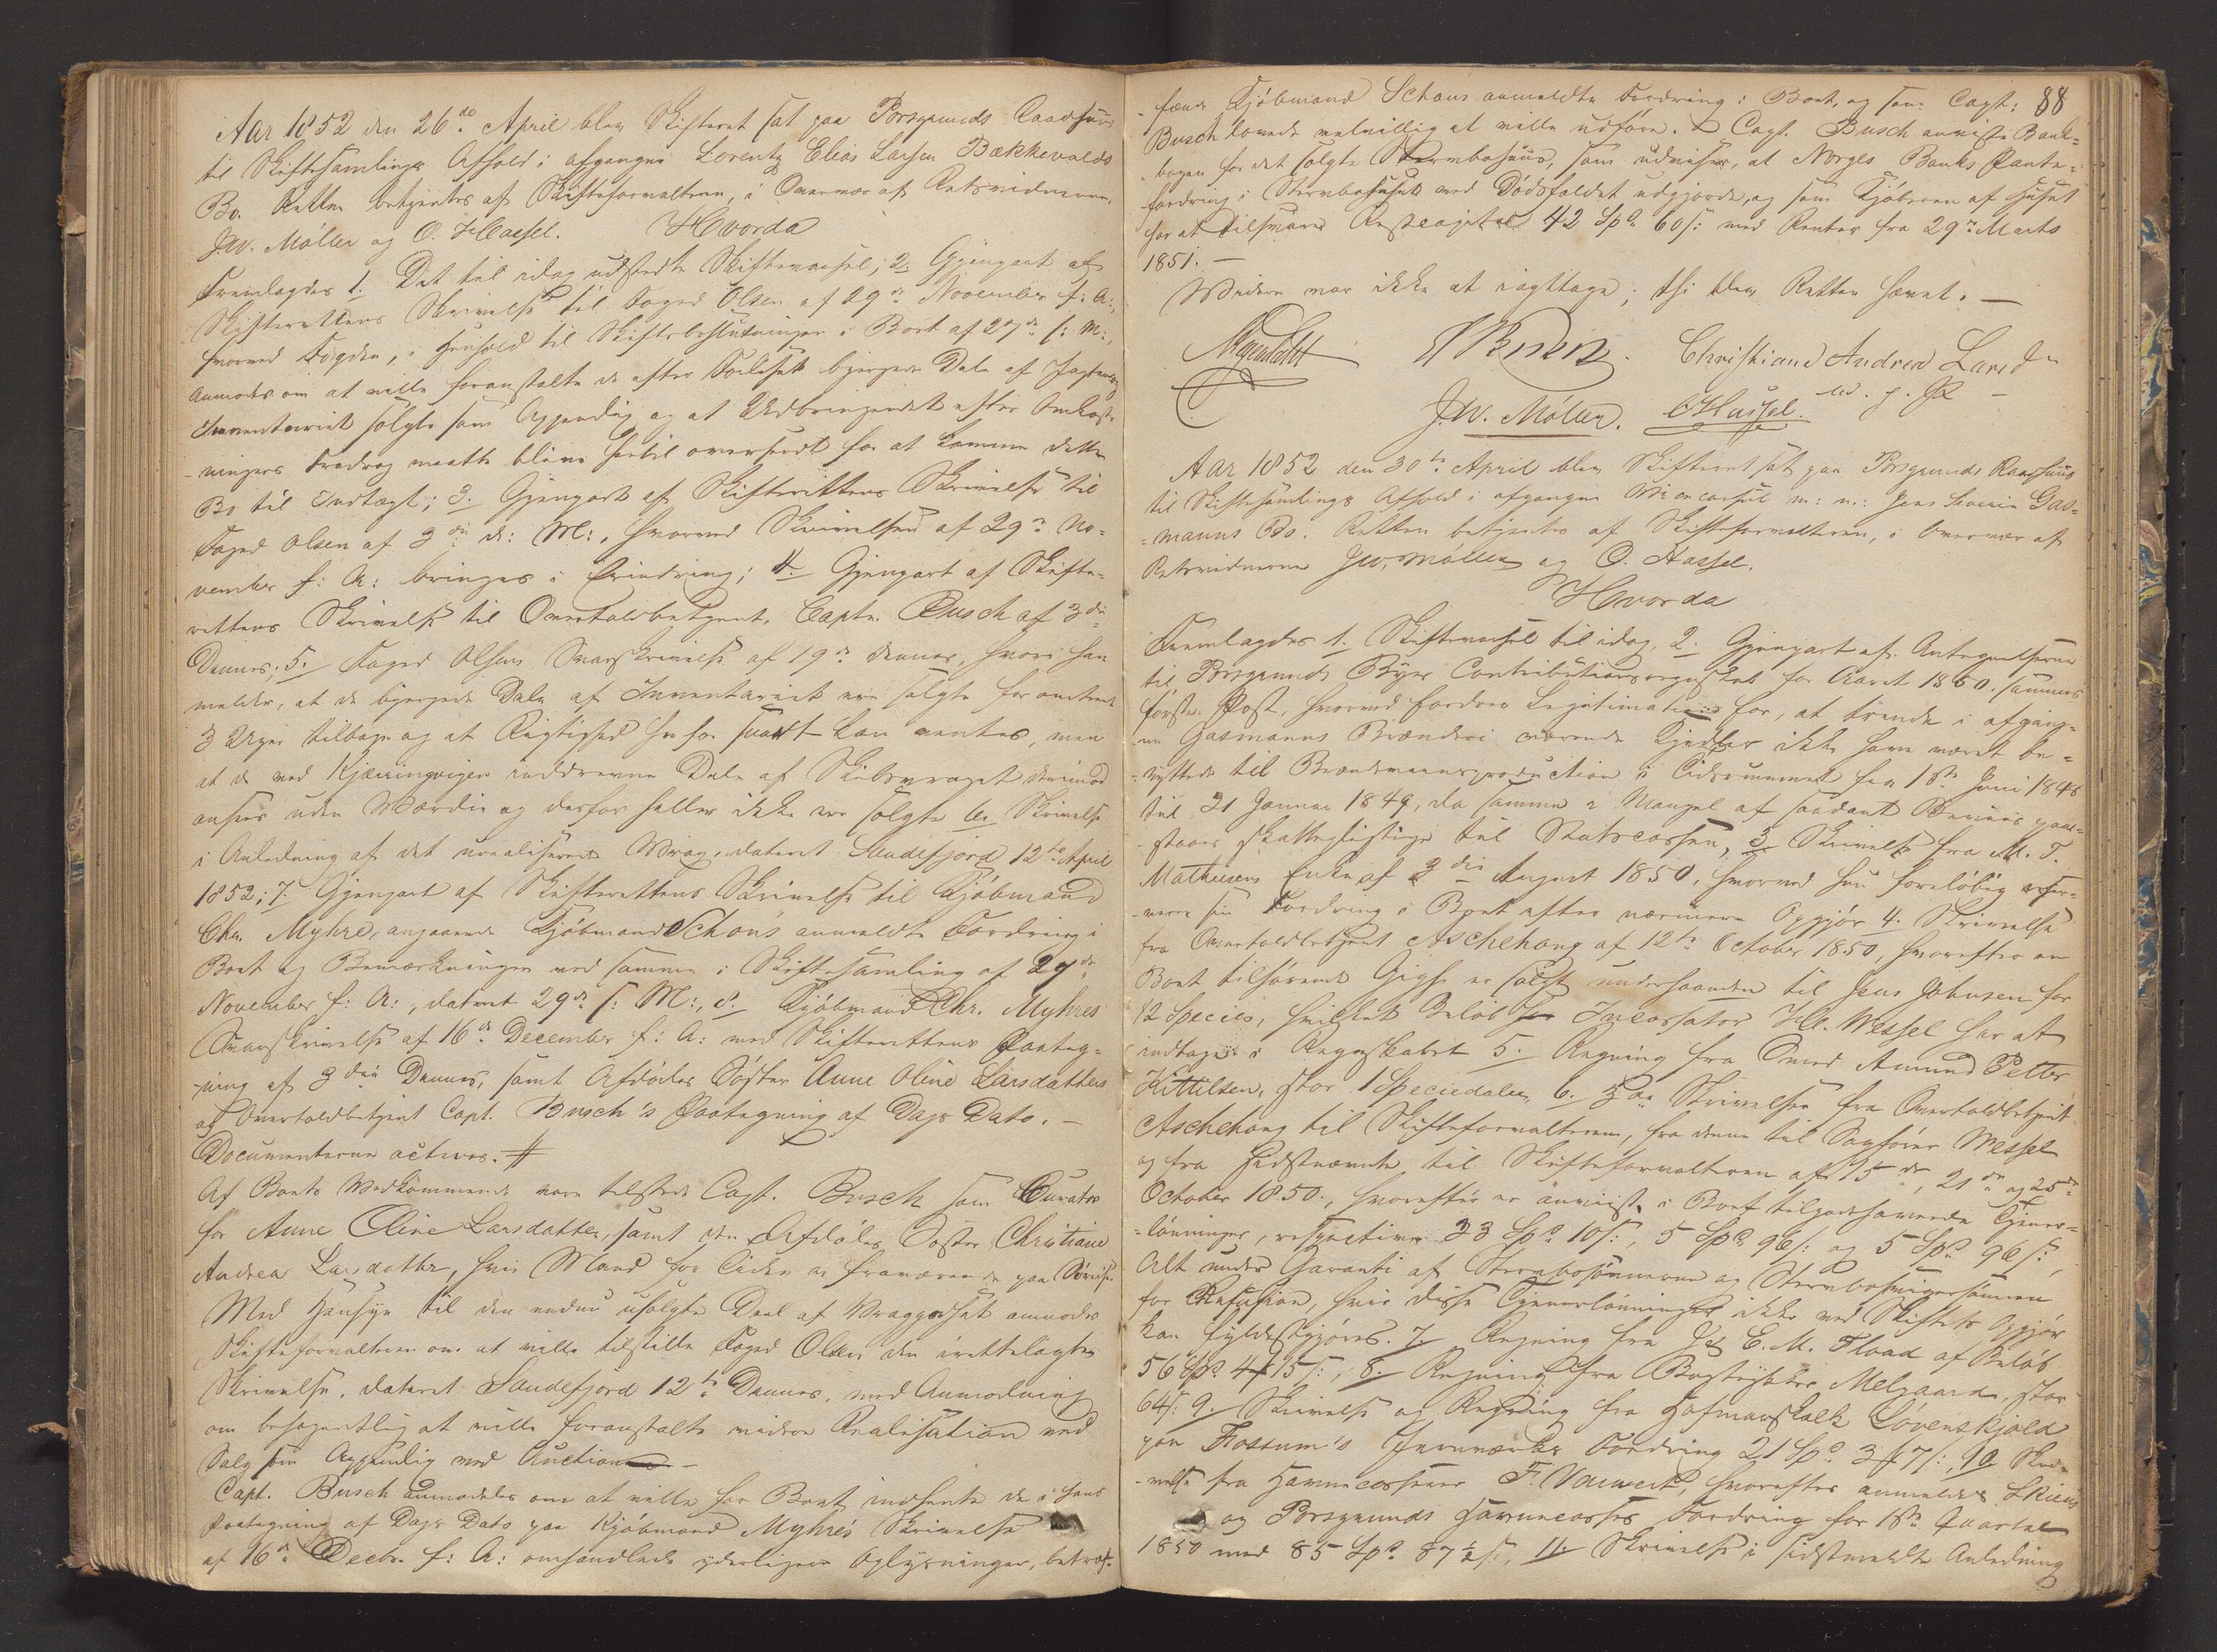 Aar 1852 den 26de April blev Skifteret sat paa Porsgrunds Raadhuus
til Skiftesamlings Afhold i afgangne Lorentz Elias Larsen Bækkevolds
Bo. Retten betjentes af Skifteforvalteren, i Overvær af Retsvidnerne,
J.W. Möller og O. Hassel. Hvorda
Fremlagdes 1. Det til idag udstedte Skiftevarsel; 2. Gjenpart af
Skifterettens Skrivelse til Foged Olsen af 29de November f: A:,
hvorved Fogden, i Henhold til Skiftebeslutningen i Boet af 27de s: M:,
anmodes om at ville foranstalte de efter Forliset bjergede Dele af Jagtens
Inventarium solgte ved Auction og at Udbringendet efter Omkost-
-ningers Fradrag maatte blive hertil oversendt for at komme dette
Bo til Indtægt; 3. Gjenpart af Skifterettens Skrivelse til
Foged Olsen af 3die d: M:, hvorved Skrivelsen af 29de No-
vember f: A: bringes i Erindring; 4. Gjenpart af Skifte-
rettens Skrivelse til Overtoldbetjent, Captn. Busch af 3die
Dennes; 5. Foged Olsens Svarskrivelse af 19de Dennes, hvori han
melder, at de bjergede Dele af Inventariet ere solgte for omtrent
3 Uger tilbage og at Rigtighed herfor snart kan ventes, men
at de ved Kjærringvigen inddrevne Dele af Skibsvraget derimod
ansees uden Værdie og derfor heller ikke ere solgte 6. Skrivelse
i Anledning af det urealiserede Vrag, dateret Sandefjord 12te April
1852; 7. Gjenpart af Skifterettens Skrivelse til Kjöbmand
Chr. Myhre, angaaende Kjöbmand Schous anmeldte Fordring i
Boet og Bemærkningen ved samme i Skiftesamling af 27de
November f: A:, dateret 29de s: M:, 8. Kjöbmand Chr. Myhres
Svarskrivelse af 16de December f: A: med Skifterettens Paateg-
-ning af 3die Dennes, samt Afdödes Söster Anne Oline Larsdatters
og Overtoldbetjent Capt. Busch's Paategning af Dags Dato. —
Documenterne acteres. #
Af Boets Vedkommende vare tilstede Capt. Busch som Curator
for Anne Oline Larsdatter, samt den Afdödes Söster Christiane
Andrea Larsdatter, hvis Mand for Tiden er fraværende paa Söreise.
Med Hensyn til den endnu usolgte Deel af Vraggodset anmodes
Skifteforvalteren om at ville tilstille Foged Olsen den irettelagte
Skrivelse, dateret Sandefjord 12te Dennes, med Anmodning
om behagentlig at ville foranstalte videre Realisation ved
Salg ved Auction —
Capt. Busch anmodedes om at ville for Boet indhente de i hans
Paategning af Dags Dato paa Kjöbmand Myhres Skrivelse
af 16de Decbr. f: A: omhandlede yderligere Oplysninger, betræf-
88
-fende Kjöbmand Schous anmeldte Fordring i Boet, og som Capt:
Busch lovede velvillig at ville udföre. Capt. Busch anviste Bank-
-bogen for det solgte Stervbohuus, som udviser, at Norges Banks Pante-
fordring i Stervbohuset ved Dödsfaldet udgjorde, og som Kjöberen af Huset
har at tilsvare Restcapital 42 Spd. 60 s: med Renter fra 29de Marts
1851. —
Videre var ikke at iagttage; thi blev Retten hævet. —
Busch. Christiane Andrea Larsd
m. p. P.
J.W. Möller. O Hassel.
Aar 1852 den 30te April blev Skifteret sat paa Porsgrunds Raadhuus
til Skiftesamlings Afhold i afgangne Viceconsul m: m: Jens Severin Gas-
-manns Bo. Retten betjentes af Skifteforvalteren, i Overvær af
Retsvidnerne J.W. Möller og O. Hassel.
Hvorda
Fremlagdes 1. Skiftevarsel til idag, 2. Gjenpart af Antegnelserne
til Porsgrunds Byes Contributionsregnskab for Aaret 1850, sammes
förste Post, hvorved fordres Legitimation for, at tvende i afgang-
ne Gasmanns Brænderi værende Kjedler ikke have været be-
-nyttede til Brændeviinsproduction i Tidsrummet fra 1ste Juni 1848
til 31 Januar 1849, da samme i Mangel af saadant Beviis paa-
-staaes skattepligtige til Statscassen, 3. Skrivelse fra M. T.
Mathiesens Enke af 3die August 1850, hvorved hun forelöbig reser-
verer sin Fordring i Boet efter nærmere Opgjör 4. Skrivelse
fra Overtoldbetjent Aschehoug af 12te October 1850, hvorefter en
Boet tilhörende Gigh er solgt underhaanden til Jens Johnsen for
12 Species, hvilket Belöb Incassator Hr. Wessel har at
indtage i Regnskabet 5. Regning fra Smed Amund Petter
Kittilsen, stor 1 Speciedaler, 6. 3de Skrivelser fra Overtoldbetjent
Aschehoug til Skifteforvalteren, fra denne til Sagförer Wessel
og fra Sidstnævnte til Skifteforvalteren af 15de, 21de og 25de
October 1850, hvorefter er anviist, i Boet tilgodehavende Tjener-
-lönninger, respective 33 Spd. 10 s:, 5 Spd. 96 s: og 5 Spd. 96 s:,
Alt under Garanti af Stervbosönnerne og Stervbosvigersönnen
for Refusion, hvis disse Tjenerlönninger ikke ved Skiftets Opgjör
kan fyldestgjöres. 7. Regning fra E. M. Flood af Belöb
56 Spd. 4 15 s:, 8. Regning fra Bogtrykker Melgaard, stor
64 s: 9. Skrivelse og Regning fra Hofmarskalk Lövenskjold
paa Fossum's Jernværks Fordring 21 Spd. 3 7 s:, 10. Skri-
-velse fra Havnecasserer F. Vauvert, hvorefter anmeldes Skiens
og Porsgrunds Havnecasses Fordring for 1ste Qvartal
1850 med 85 Spd. 87½ s:, 11. Skrivelse i sidstmeldte Anledning